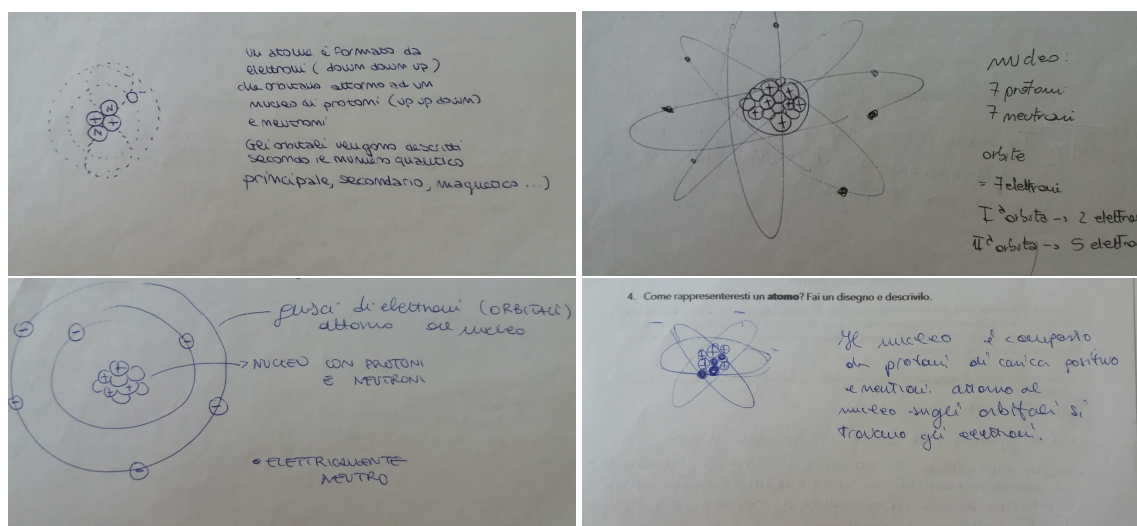 Un atomo è formato da
elettroni (down down up)
che orbitano attorno ad un
nucleo di protoni (up up down)
e neutroni
Gli orbitali vengono descritti
secondo il numero quantico
principale, secondario, magnetico ...)
N
+
+
N
nucleo:
7 protoni
7 neutroni
orbite
= 7 elettroni
Iª orbita -> 2 elettro
IIª orbita -> 5 elettro
gusci di elettroni (ORBITALI)
attorno al nucleo
NUCLEO CON PROTONI
E NEUTRONI
• ELETTRICAMENTE
NEUTRO
4. Come rappresenteresti un atomo? Fai un disegno e descrivilo.
Il nucleo è composto
da protoni di carica positivo
e neutroni. attorno al
nucleo sugli orbitali si
trovano gli elettroni.